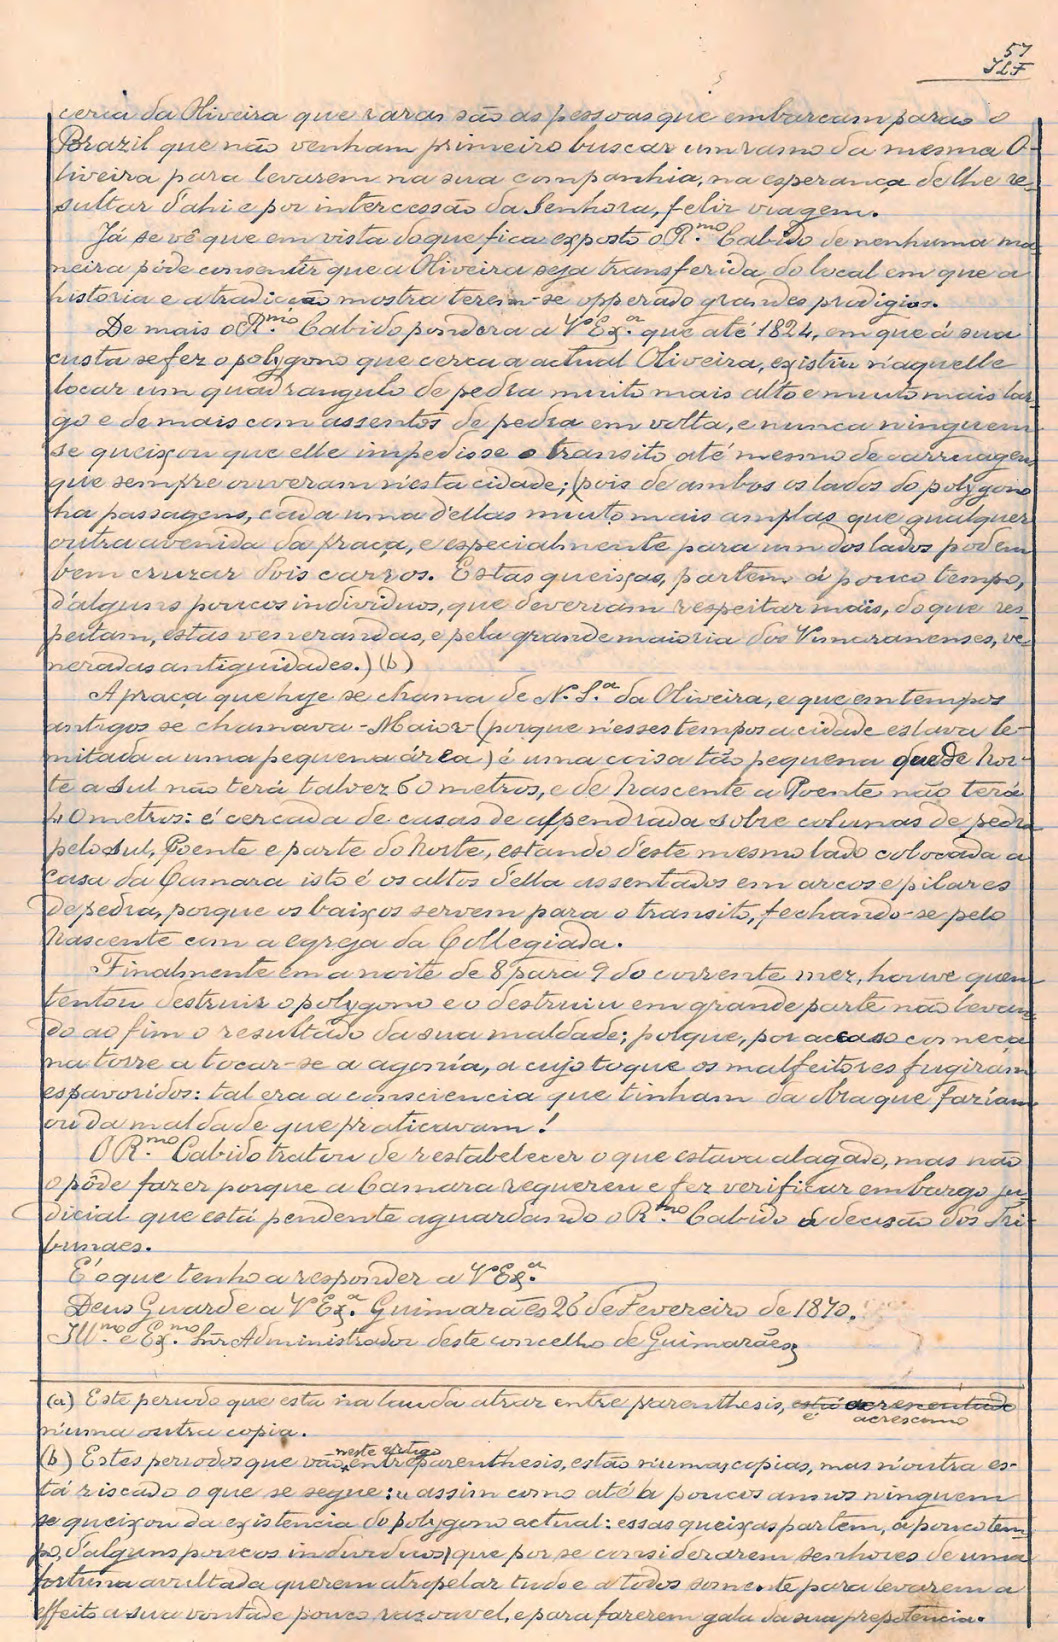 57
JLF
ceria da Oliveira que raras são as pessoas que embarcam para o
Brazil que não venham primeiro buscar um ramo da mesma O-
liveira para levarem na sua companhia, na esperança de lhe re-
sultar d'ahi e por intercessão da Senhora, feliz viagem.
Já se vê que em vista do que fica exposto o R.mo Cabido de nenhuma ma-
neira póde consentir que a Oliveira seja transferida do local em que a
historia e a tradicção mostra terem-se opperado grandes prodigios.
De mais o R.mo Cabido pondera a V Ex.a que até 1824, em que á sua
custa se fez o polygono que cerca a actual Oliveira, existiu n'aquelle
locar um quadrangulo de pedra muito mais alto e muito mais lar-
go e de mais com assentos de pedra em volta, e nunca ninguem
se queixou que elle impedisse o transito até mesmo de carruagens
que sempre ouveram n'esta cidade; (pois de ambos os lados do polygono
ha passagens, cada uma d'ellas muito mais amplas que qualquer
outra avenida da praça, e especialmente para um dos lados podem
bem cruzar dois carros. Estas queixas, partem á pouco tempo,
d'alguns poucos individuos, que deveriam respeitar mais, do que res-
peitam, estas venerandas, e pela grande maioria dos Vimaranenses, ve-
neradas antiguidades.) (b)
A praça que hoje se chama de N. S.a da Oliveira, e que em tempos
antigos se chamava - Maior - (porque n'esses tempos a cidade estava le-
mitada a uma pequena área) é uma coisa tão pequena que de Nor-
te a Sul não terá talvez 60 metros, e de Nascente a Poente não terá
40 metros: é cercada de casas de alpendrada sobre colunas de pedra
pelo sul, Poente e parte do Norte, estando d'este mesmo lado colocada a
casa da Camara isto é os altos d'ella assentados em arcos e pilares
de pedra, porque os baixos servem para o transito, fechando-se pelo
Nascente com a egreja da Collegiada.
Finalmente em a noite de 8 para 9 do corrente mez, houve quem
tentou destruir o polygono e o destruiu em grande parte não levan-
do ao fim o resultado da sua maldade; porque, por acaso começa
na torre a tocar-se a agonía, a cujo toque os malfeitores fugiram
espavoridos: tal era a consciencia que tinham da obra que faríam
ou da maldade que praticavam!
O R.mo Cabido tratou de restabelecer o que estava alagado, mas não
o pôde fazer porque a Camara requereu e fez verificar embargo ju-
dicial que está pendente aguardando o R.mo Cabido a decisão dos Tri-
bunaes.
É o que tenho a responder a V Ex.a
Deus Guarde a V Ex.a Guimarães 26 de Fevereiro de 1870.
Ill.mo e Ex.mo Snr Administrador deste concelho de Guimarães
(a) Este periodo que esta na lauda atraz entre parenthesis, está acrescentado
é acrescimo
n'uma outra copia.
neste artigo
(b) Estes periodos que vão entre parenthesis, estão n'umas copias, mas n'outra es-
tá riscado o que se segue: " assim como até á poucos annos ninguem
se queixou da existencia do polygono actual: essas queixas partem, á pouco tem-
po, d'alguns poucos individuos) que por se considerarem senhores de uma
fortuna avultada querem atropelar tudo e a todos somente para levarem a
effeito a sua vontade pouco razoavel, e para fazerem gala da sua prepotencia.